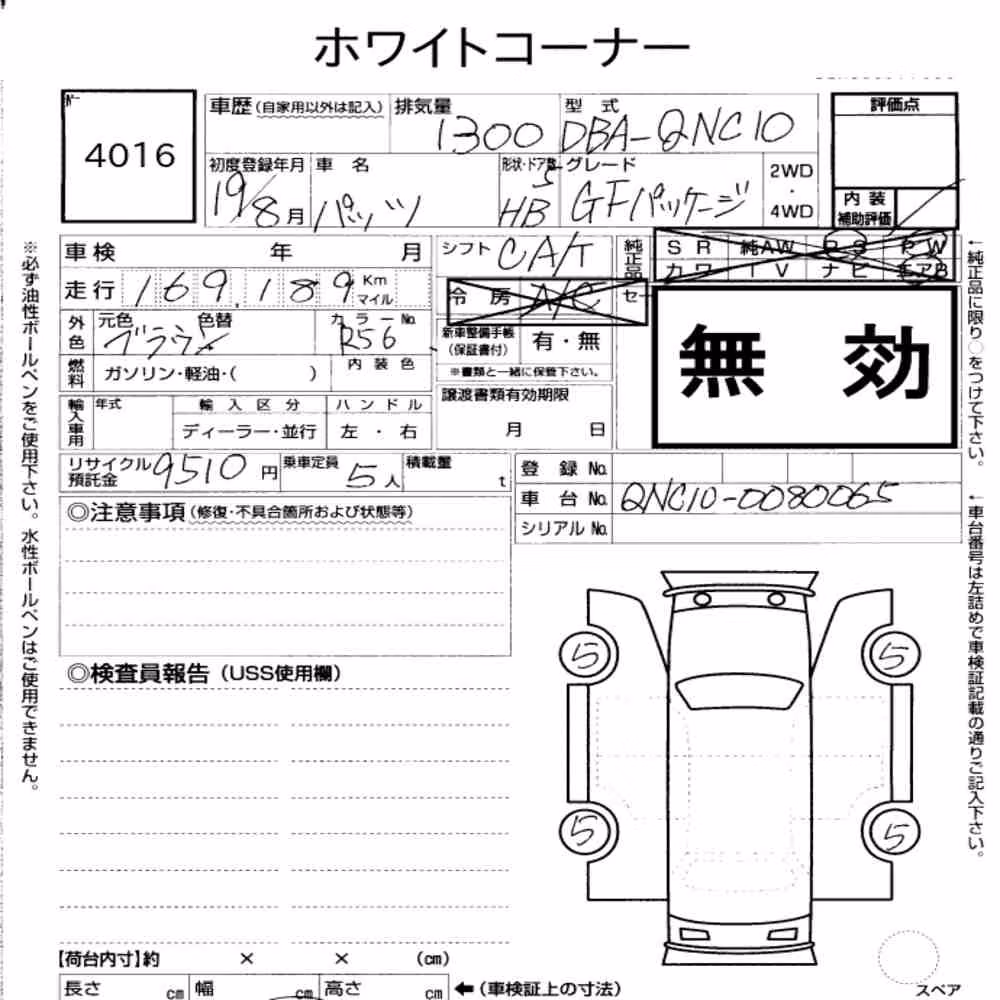 ホワイトコーナー
4016
車歴(自家用以外は記入)
排気量
1300
型 式
DBA-QNC10
評価点
初度登録年月
19/8月
車 名
パッソ
形状・ドア数
5
HB
グレード
GFパッケージ
2WD
・
4WD
内 装
補助評価
車検 年 月
シフト CA/T
純正品
SR 純AW PS PW
カワ TV ナビ エアB
走行 169,189 Km
マイル
冷 房 A/C
セー
無 効
外色
元色 色替
ブラウン
カラーNo.
R56
新車整備手帳
(保証書付)
有・無
※書類と一緒に保管下さい。
燃料
ガソリン・軽油・( )
内装色
譲渡書類有効期限
月 日
輸入車用
年式
輸入区分
ディーラー・並行
ハンドル
左・右
リサイクル
預託金
9510円
乗車定員
5人
積載量
t
登 録 No.
車 台 No. QNC10-0080065
シリアル No.
◎注意事項(修復・不具合箇所および状態等)
◎検査員報告(USS使用欄)
5
5
5
5
【荷台内寸】約 × × (cm)
長さ cm 幅 cm 高さ cm ←(車検証上の寸法)
スペア
※必ず油性ボールペンをご使用下さい。水性ボールペンはご使用できません。
←純正品に限り○をつけて下さい。
←車台番号は左詰めで車検証記載の通りご記入下さい。